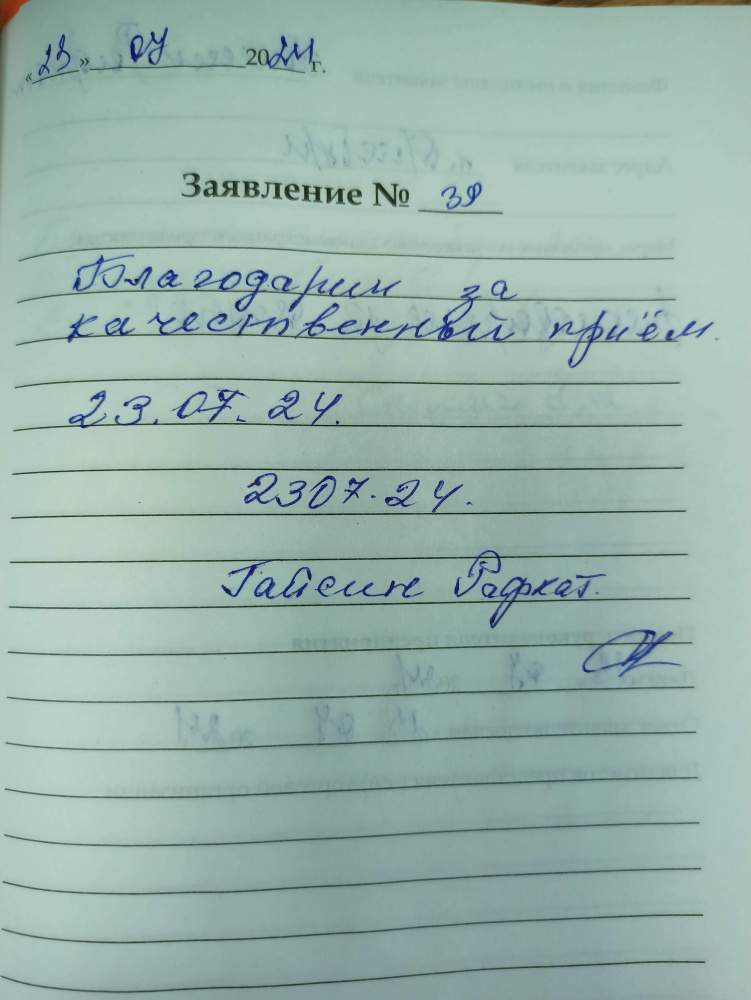 «23» 07 2024 г.
Заявление № 38
Благодарим за
качественный приём.
23.07.24.
2307.24.
Гайсин Рафкат.